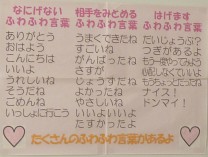 なにげない
ふわふわ言葉
ありがとう
おはよう
こんにちは
いいよ
うれしいね
そうだね
ごめんね
いっしょに行こう
相手をみとめる
ふわふわ言葉
うまくできたね
すごいね
がんばったね
さすがだね
じょうずだね
よかったね
やさしいね
いいよいいよ
たすかったよ
はげます
ふわふわ言葉
だいじょうぶ?
つぎがあるよ
もう一度やってみよう
心配しなくていいよ
もうちょっとだったね
ナイス!
ドンマイ!
たくさんのふわふわ言葉があるよ